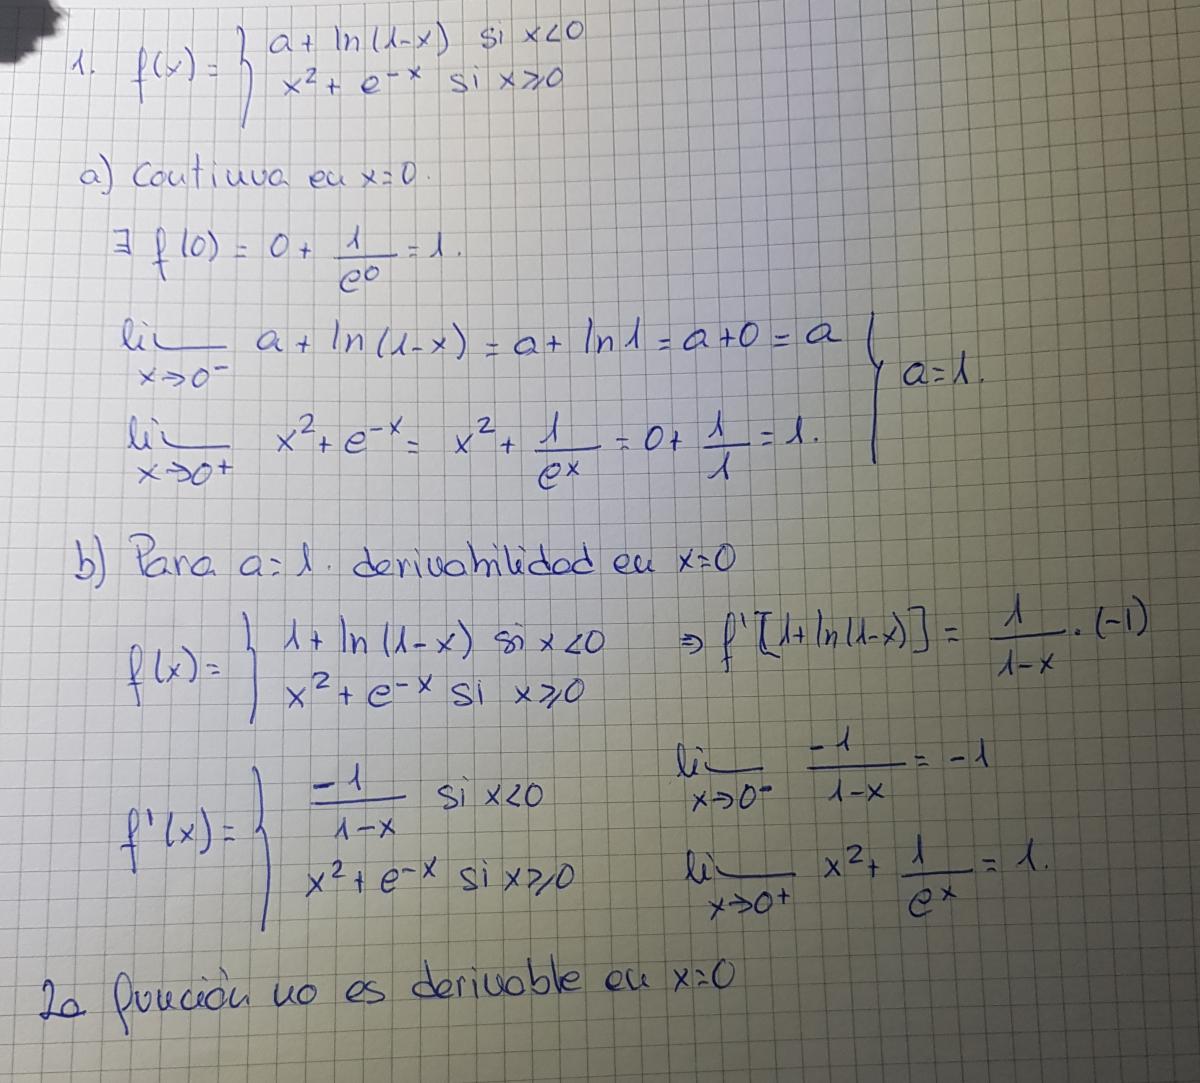 1. f(x) = { a + ln(1-x) si x<0
x² + e^-x si x⩾0
a) Continua en x=0.
∃ f(0) = 0 + 1/e^0 = 1.
lim x→0^- a + ln(1-x) = a + ln1 = a+0 = a
a=1.
lim x→0^+ x² + e^-x = x² + 1/e^x = 0 + 1/1 = 1.
b) Para a=1. derivabilidad en x=0
f(x) = { 1 + ln(1-x) si x<0 ⇒ f'[1+ln(1-x)] = 1/(1-x) · (-1)
x² + e^-x si x⩾0
f'(x) = { -1/(1-x) si x<0 lim x→0^- -1/(1-x) = -1
x² + e^-x si x⩾0 lim x→0^+ x² + 1/e^x = 1.
La función no es derivable en x=0